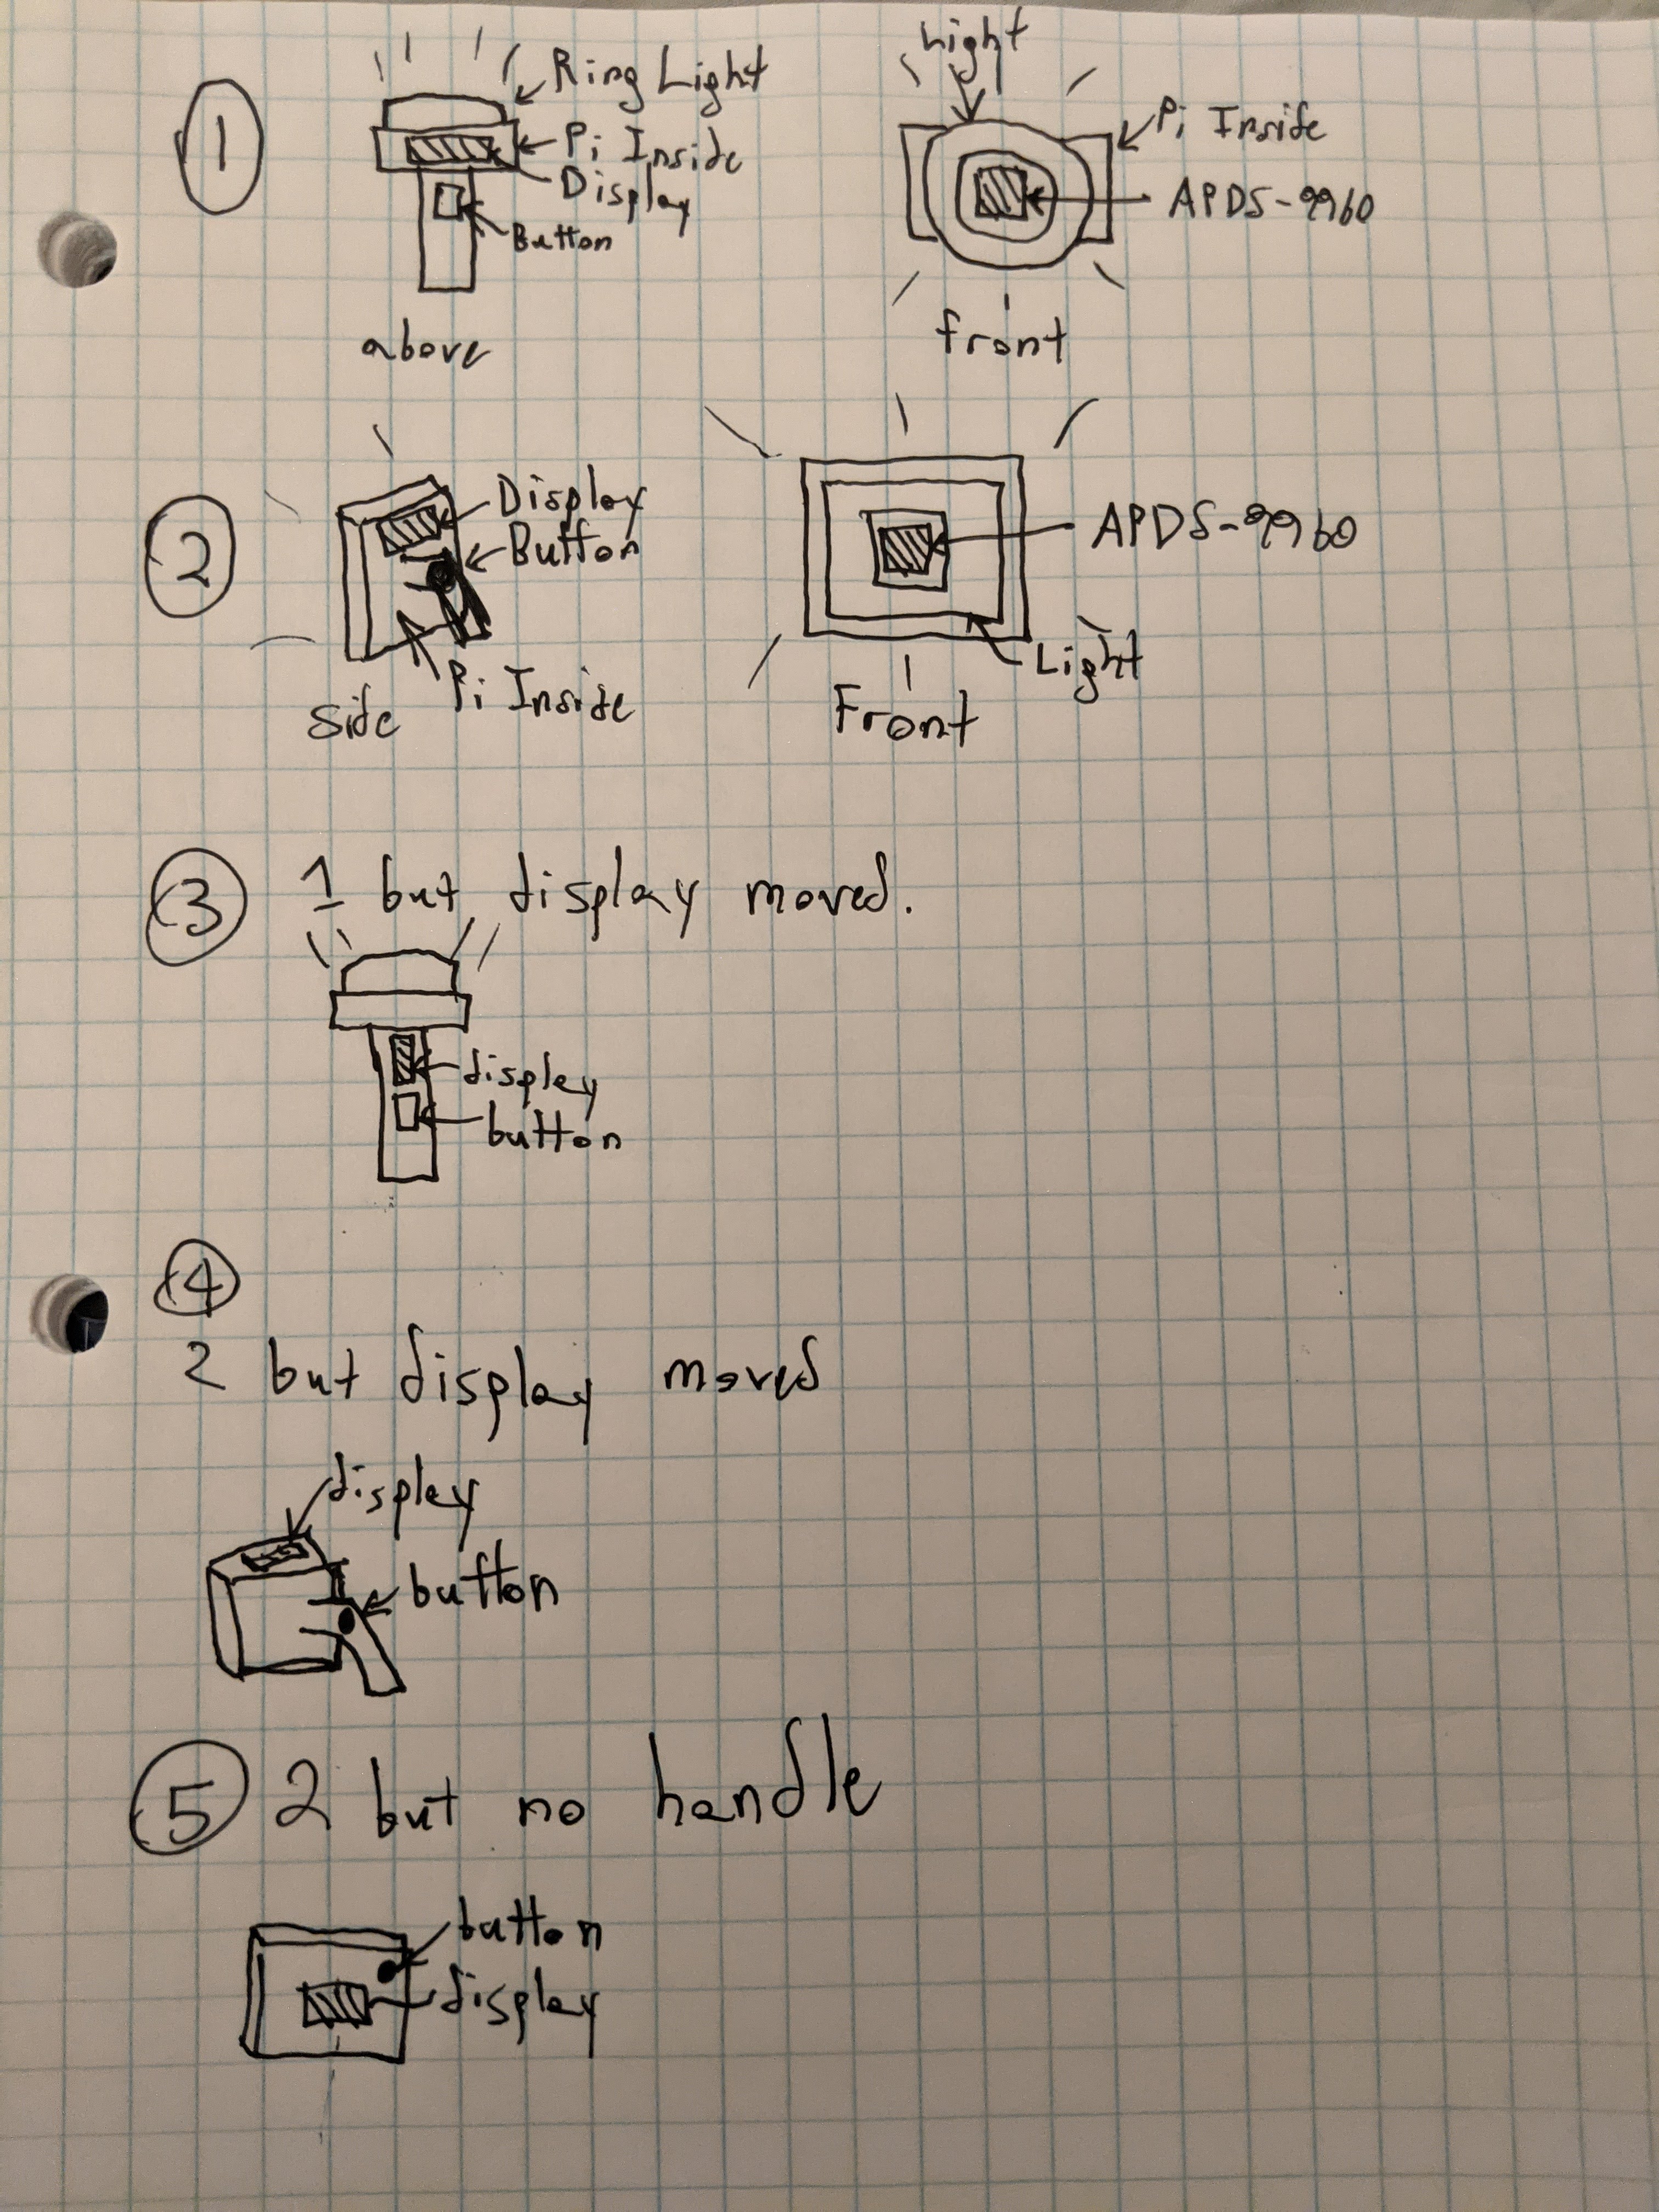 1
Ring Light
Pi Inside
Display
Button
above
Light
Pi Inside
APDS-9960
front
2
Display
Button
Pi Inside
Side
APDS-9960
Light
Front
3 1 but display moved.
display
button
4
2 but display moved
display
button
5 2 but no handle
button
display